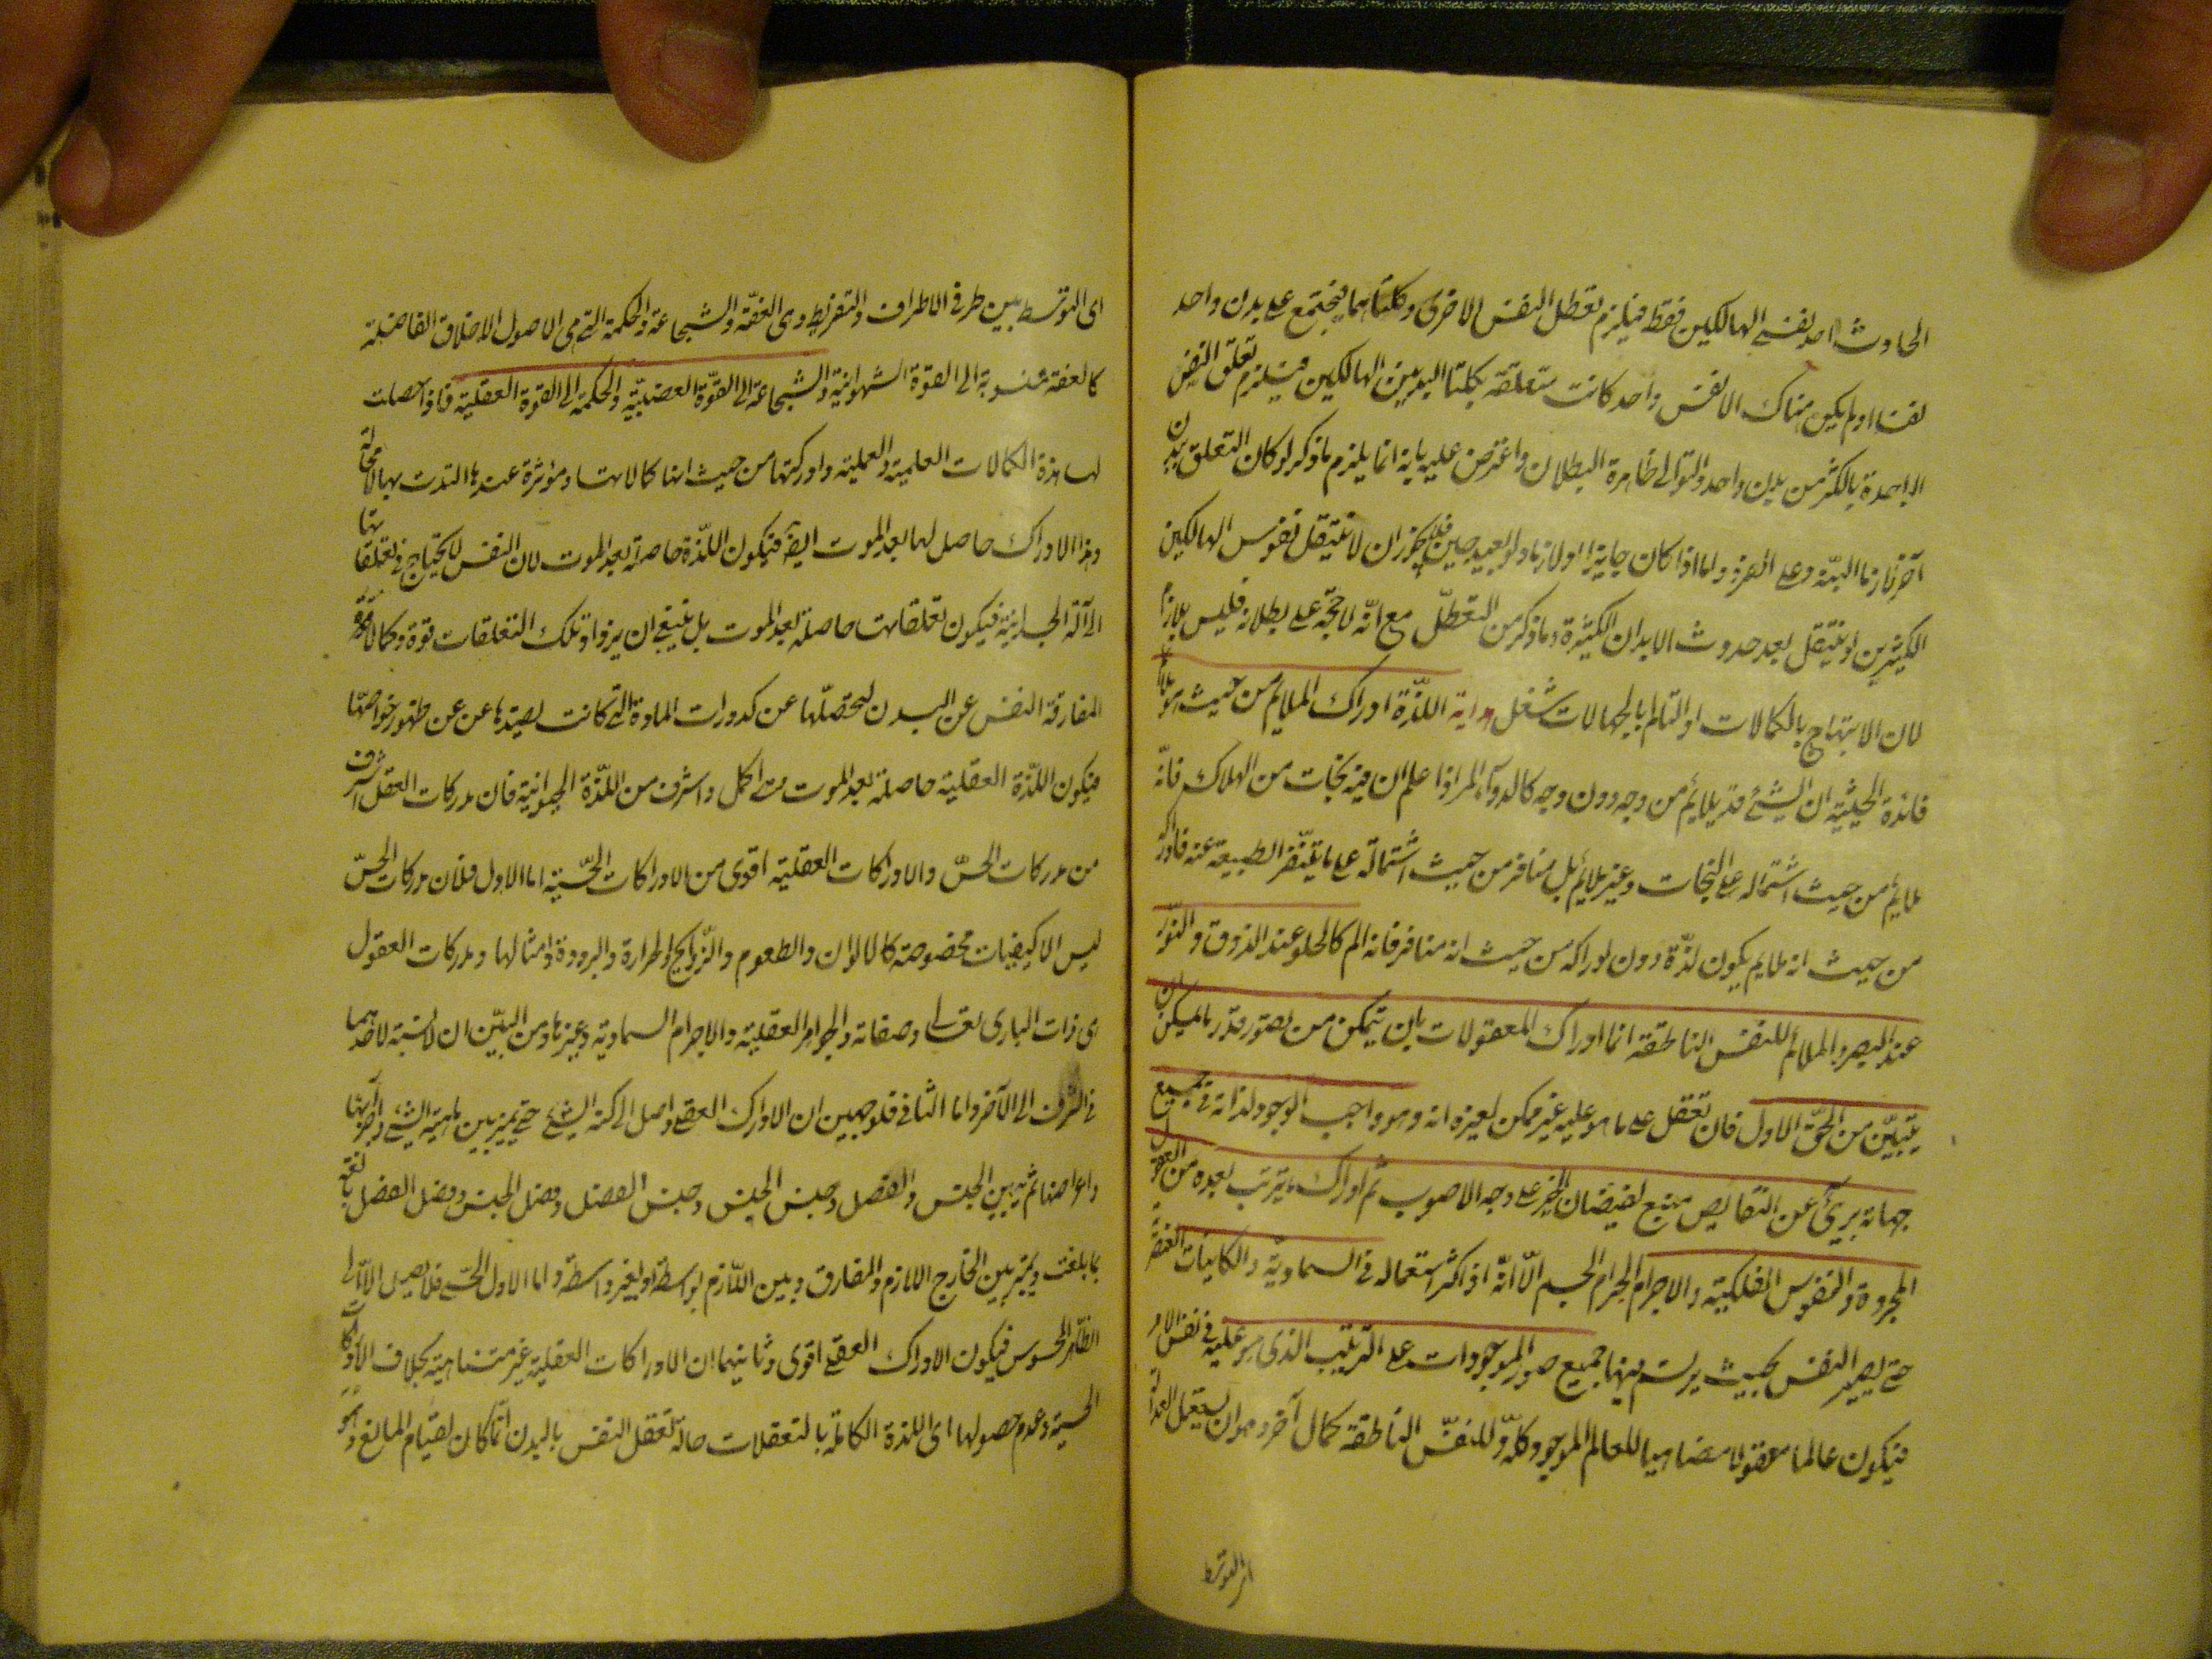 الحادث احد نفسى الهالكين فقط فيلزم تعطل النفس الاخرى وكلتاهما فيجتمع على بدن واحد
نفسان او لم يكن هناك الا نفس واحد كانت متعلقة بكلتا البدنين الهالكين فيلزم تعلق النفس
الواحدة بالكثر من بدن واحد والتوالى ظاهرة البطلان واعترض عليه بانه انما يلزم ما ذكر لو كان التعلق ببدن
آخر لازما البتة وعلى الفور واما اذا كان جايزا او لازما ولو بعد حين فلم يجوز ان لا ينتقل نفوس الهالكين
الكثيرين او ينتقل بعد حدوث الابدان الكثيرة وما ذكر من التعطل مع انه لا حجة على بطلانه فليس بلازم
لان الابتهاج بالكمالات او التالم بالجهالات شغل هداية اللذة ادراك الملايم من حيث هو ملايم
فائدة الحيثية ان الشئ قد يلايم من وجه دون وجه كالدواء المر اذا علم ان فيه نجات من الهلاك فانه
ملايم من حيث اشتماله على النجات وغير ملايم بل منافر من حيث اشتماله على ما يتنفر الطبيعة عنه فادراكه
من حيث انه ملايم يكون لذة دون ادراكه من حيث انه منافر فانه الم كالحلو عند الذوق والنور
عند البصر والملايم للنفس الناطقة انما ادراك المعقولات بان يتمكن من تصور قدر ما يمكن ان
يتبين من الحق الاول فان تعقل على ما هو عليه غير ممكن لغيره انه وهو واجب الوجود لذاته فى جميع
جهاته برئ عن النقايص منبع لفيضان الخير على وجه الاصوب ثم ادراك ما يترتب بعده من العقول
المجردة والنفوس الفلكية والاجرام الجرام الجسم الا انه اذا كثر استعماله فى السماوية والكاينات العنصرية
حتى يصير النفس بحيث يرتسم فيها جميع صور الموجودات على الترتيب الذى هو عليه فى نفس الامر
فيكون عالما معقولا مضاهيا للعالم الموجود كله وللنفس الناطقة كمال آخر وهو ان يستعمل العدالة
اى التوسط
اى التوسط بين طرفى الاطراف والتفريط وهى العفة والشجاعة والحكمة التى هى الاصول الاخلاق الفاضلة
كالعفة منسوبة الى القوة الشهوانية والشجاعة الى القوة الغضبية والحكمة الى القوة العقلية فاذا حصلت
لها هذه الكمالات العلمية والعملية وادركتها من حيث انها كمالاتها ومؤثرة عندها التذت بها لا محالة
وهذا الادراك حاصل لها بعد الموت ايضا فيكون اللذة حاصلة بعد الموت لان النفس لا يحتاج فى تعلقاتها
الى آلة الجسمانية فيكون تعلقاتها حاصلة بعد الموت بل ينبغى ان يزداد تلك التعلقات قوة وكمالا
المفارقة النفس عن البدن لتحصلها عن كدورات المادة التى كانت تصدها عن عن ظهور خواصها
فيكون اللذة العقلية حاصلة بعد الموت متى اكمل واشرف من اللذة الحيوانية فان مدركات العقل اشرف
من مدركات الحس والادراكات العقلية اقوى من الادراكات الحسية اما الاول فلان مدركات الحس
ليس الا كيفيات مخصوصة كالالوان والطعوم والروايح والحرارة والبرودة وامثالها ومدركات العقول
هى ذات البارى تعالى وصفاته والجواهر العقلية والاجرام السماوية وغيرها ومن البين ان لا نسبة لاحدهما
فى الشرف الى الآخر واما الثانى فلوجهين ان الادراك العقلى واصل الى كنه الشئ حتى يميز بين ماهية الشئ واجزائها
واعراضها ثم يميز بين الجنس والفصل وجنس الجنس وجنس الفصل وفصل الجنس وفصل الفصل بالغة
ما بلغت ويميز بين الخارج اللازم والمفارق وبين اللازم بواسطة او بغير واسطة واما الاول الحسى فلا يصل الا الى
الظاهر المحسوس فيكون الادراك العقلى اقوى وثانيهما ان الادراكات العقلية غير متناهية بخلاف الادراكات
الحسية وعدم حصولها اى اللذة الكاملة بالتعقلات حالة تعقل النفس بالبدن انما كان لقيام المانع وهو